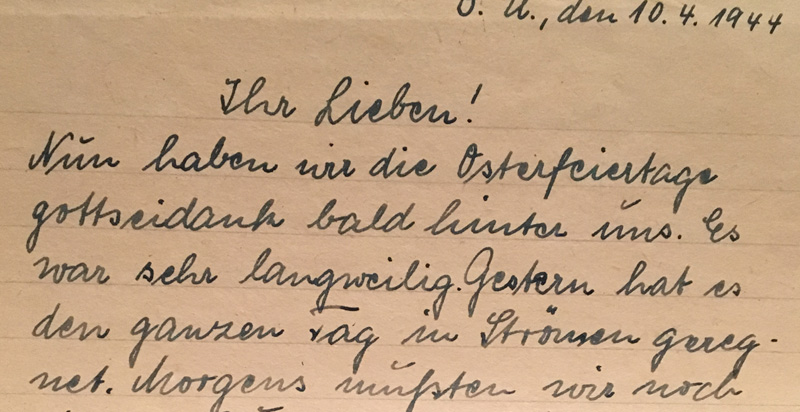 O. U., den 10.4.1944
Ihr Lieben!
Nun haben wir die Osterfeiertage
gottseidank bald hinter uns. Es
war sehr langweilig. Gestern hat es
den ganzen Tag in Strömen gereg-
net. Morgens mußten wir noch